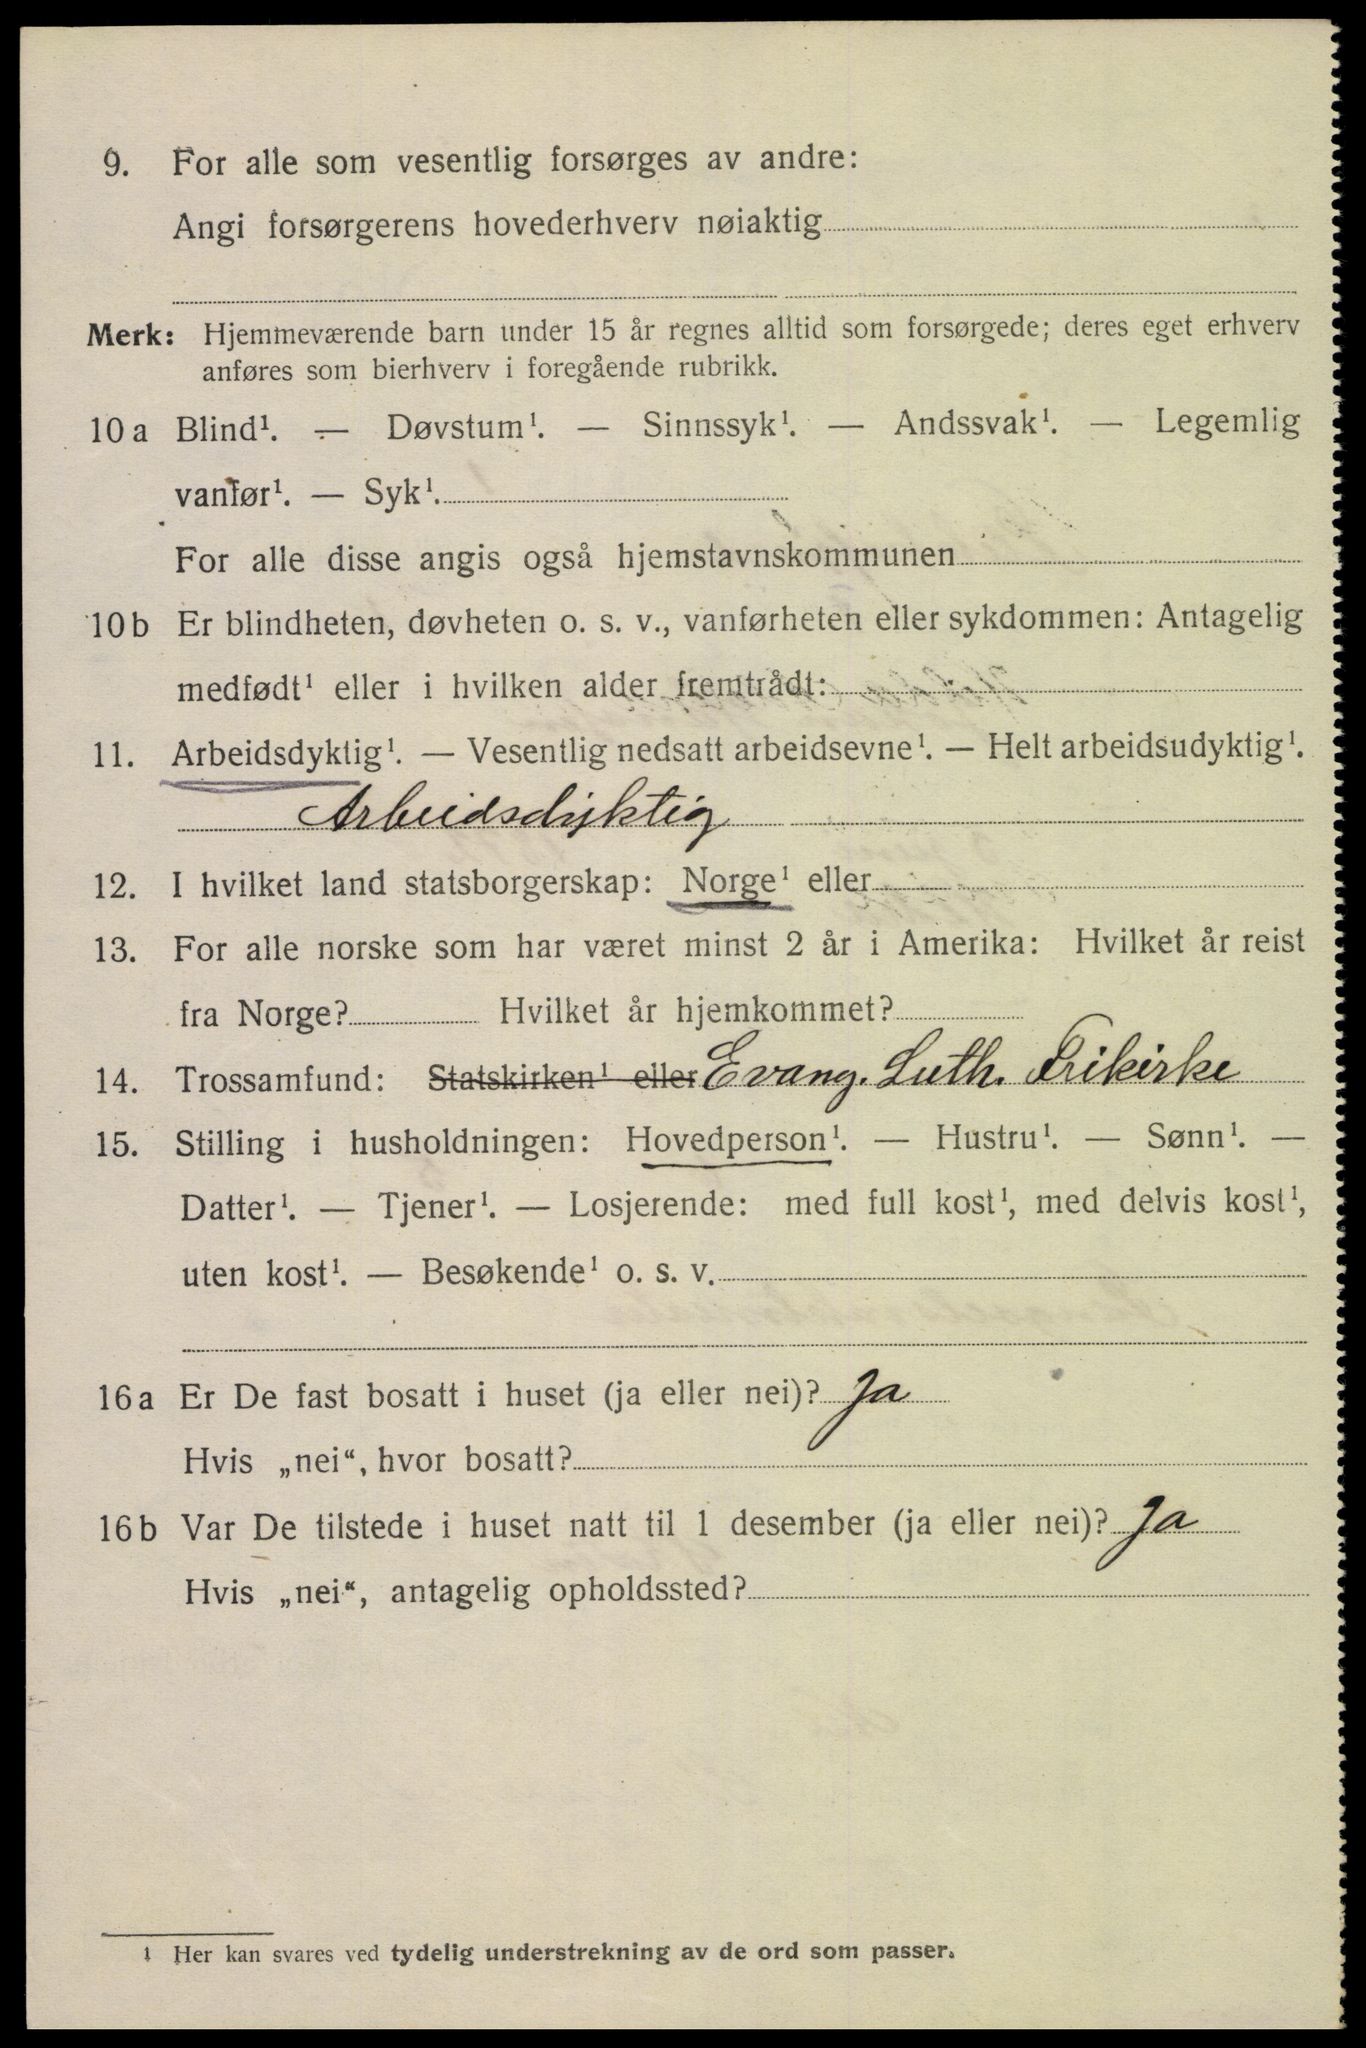 9. For alle som vesentlig forsørges av andre:
Angi forsørgerens hovederhverv nøiaktig
Merk: Hjemmeværende barn under 15 år regnes alltid som forsørgede; deres eget erhverv
anføres som bierhverv i foregående rubrikk.
10 a Blind¹. — Døvstum¹. — Sinnssyk¹. — Andssvak¹. — Legemlig
vanfør¹. — Syk¹.
For alle disse angis også hjemstavnskommunen
10 b Er blindheten, døvheten o. s. v., vanførheten eller sykdommen: Antagelig
medfødt¹ eller i hvilken alder fremtrådt:
11. Arbeidsdyktig¹. — Vesentlig nedsatt arbeidsevne¹. — Helt arbeidsudyktig¹.
Arbeidsdyktig
12. I hvilket land statsborgerskap: Norge¹ eller
13. For alle norske som har været minst 2 år i Amerika: Hvilket år reist
fra Norge? Hvilket år hjemkommet?
14. Trossamfund: Statskirken¹ eller Evang. Luth. Frikirke
15. Stilling i husholdningen: Hovedperson¹. — Hustru¹. — Sønn¹. —
Datter¹. — Tjener¹. — Losjerende: med full kost¹, med delvis kost¹,
uten kost¹. — Besøkende¹ o. s. v.
16 a Er De fast bosatt i huset (ja eller nei)? Ja
Hvis „nei“, hvor bosatt?
16 b Var De tilstede i huset natt til 1 desember (ja eller nei)? Ja
Hvis „nei“, antagelig opholdssted?
1 Her kan svares ved tydelig understrekning av de ord som passer.